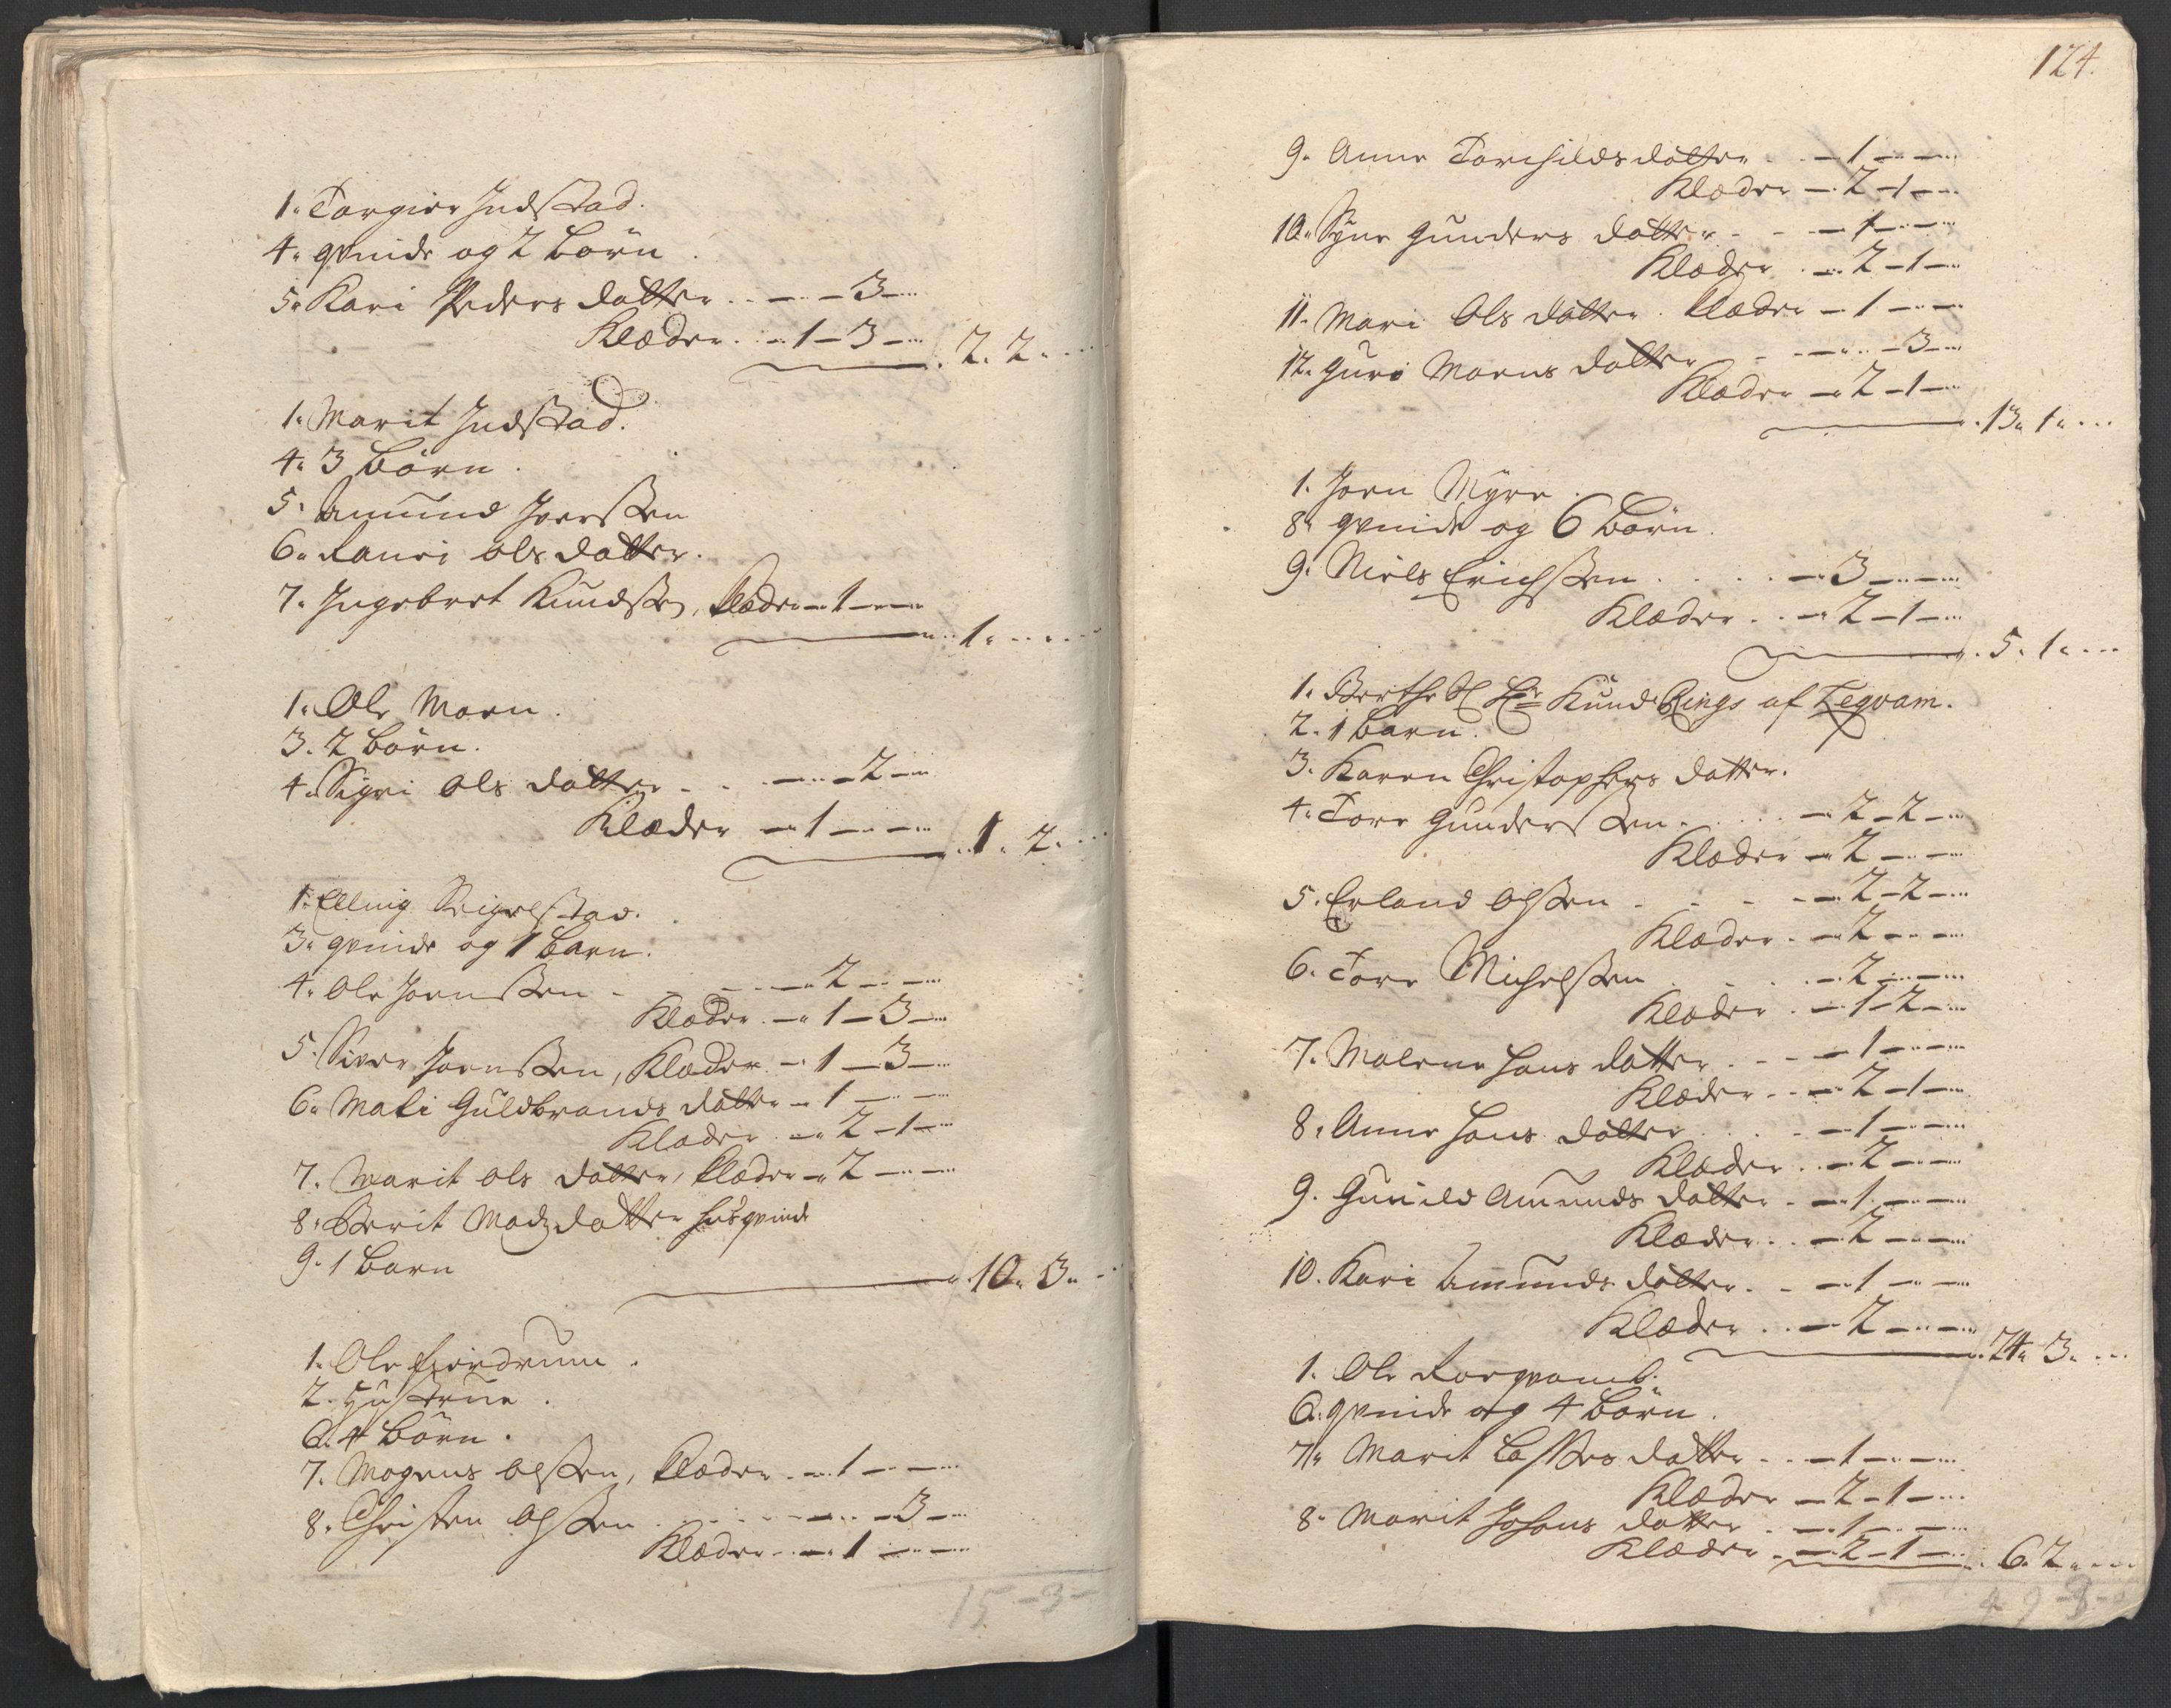 1. Torgier Indstad.
4. qvinde og 2 börn.
5. Kari Peders datter . . — — 3 —
Klæder . — 1 — 3 — . 2. 2.
1. Marit Indstad.
4. 3 börn.
5. Amund Iverssen
6. Ranvi Olsdatter.
7. Ingebret Knudss, klæder — 1 — —
1.
1. Ole Moen.
3. 2 börn.
4. Sigri Ols datter . . — — 2 —
Klæder — 1 — — . 1. 2.
1. Elling
3. qvinde og 1 barn.
4. Ole Joenssen — — 2 — —
Klæder — 1 — 3 —
5. Siver Joenssen, Klæder — 1 — 3 —
6. Mali Guldbrands datter — 1 — —
Klæder — 2 — 1 —
7. Marit Ols datter, klæder — 2 — —
8. Berit Madzdatter husqvinde
9. 1 barn
10. 3.
1. Ole
2. Hustrue.
6. 4 börn.
7. Mogens Olssen, klæder — 1 — —
8. Christen Olssen . . . — — 3 —
Klæder — 1 — —
15 - 3 -
124.
9. Anne Torchildsdatter . — 1 — —
Klæder — 2 — 1 —
10. Syne Gunders datter — 1 — —
Klæder — 2 — 1 —
11. Mari Ols datter. klæder — 1 — —
12. Guri Moens datter — — 3 —
Klæder — 2 — 1 —
13. 1.
1. Joen Myre.
8. qvinde og 6 börn.
9. Niels Erichssen . . . — 3 — —
Klæder . . — 2 — 1 —
5. 1.
1. Berthe Sl Hr Knud Rings af
2. 1 barn.
3. Karen Christophers datter.
4. Tore Gunderssen . . — 2 — 2 —
Klæder — 2 — —
5. Erland Olssen . . . — 2 — 2 —
Klæder . — 2 — —
6. Tore Michelssen . . . — 2 — —
Klæder . — 1 — 2 —
7. Malene Hans datter . . — 1 — —
Klæder . . — 2 — 1 —
8. Anne Hans datter . . — 1 — —
Klæder . . — 2 — —
9. Gunild Amunds datter . — 1 — —
Klæder . . — 2 — —
10. Kari Amunds datter . . — 1 — —
Klæder . . — 2 — —
24. 3.
1. Ole
6. qvinde og 4 börn.
7. Marit datter . . — 1 — —
Klæder — 2 — 1 —
8. Marit Johans datter . — 1 — —
Klæder . — 2 — 1 — . 6. 2.
49 - 3 -